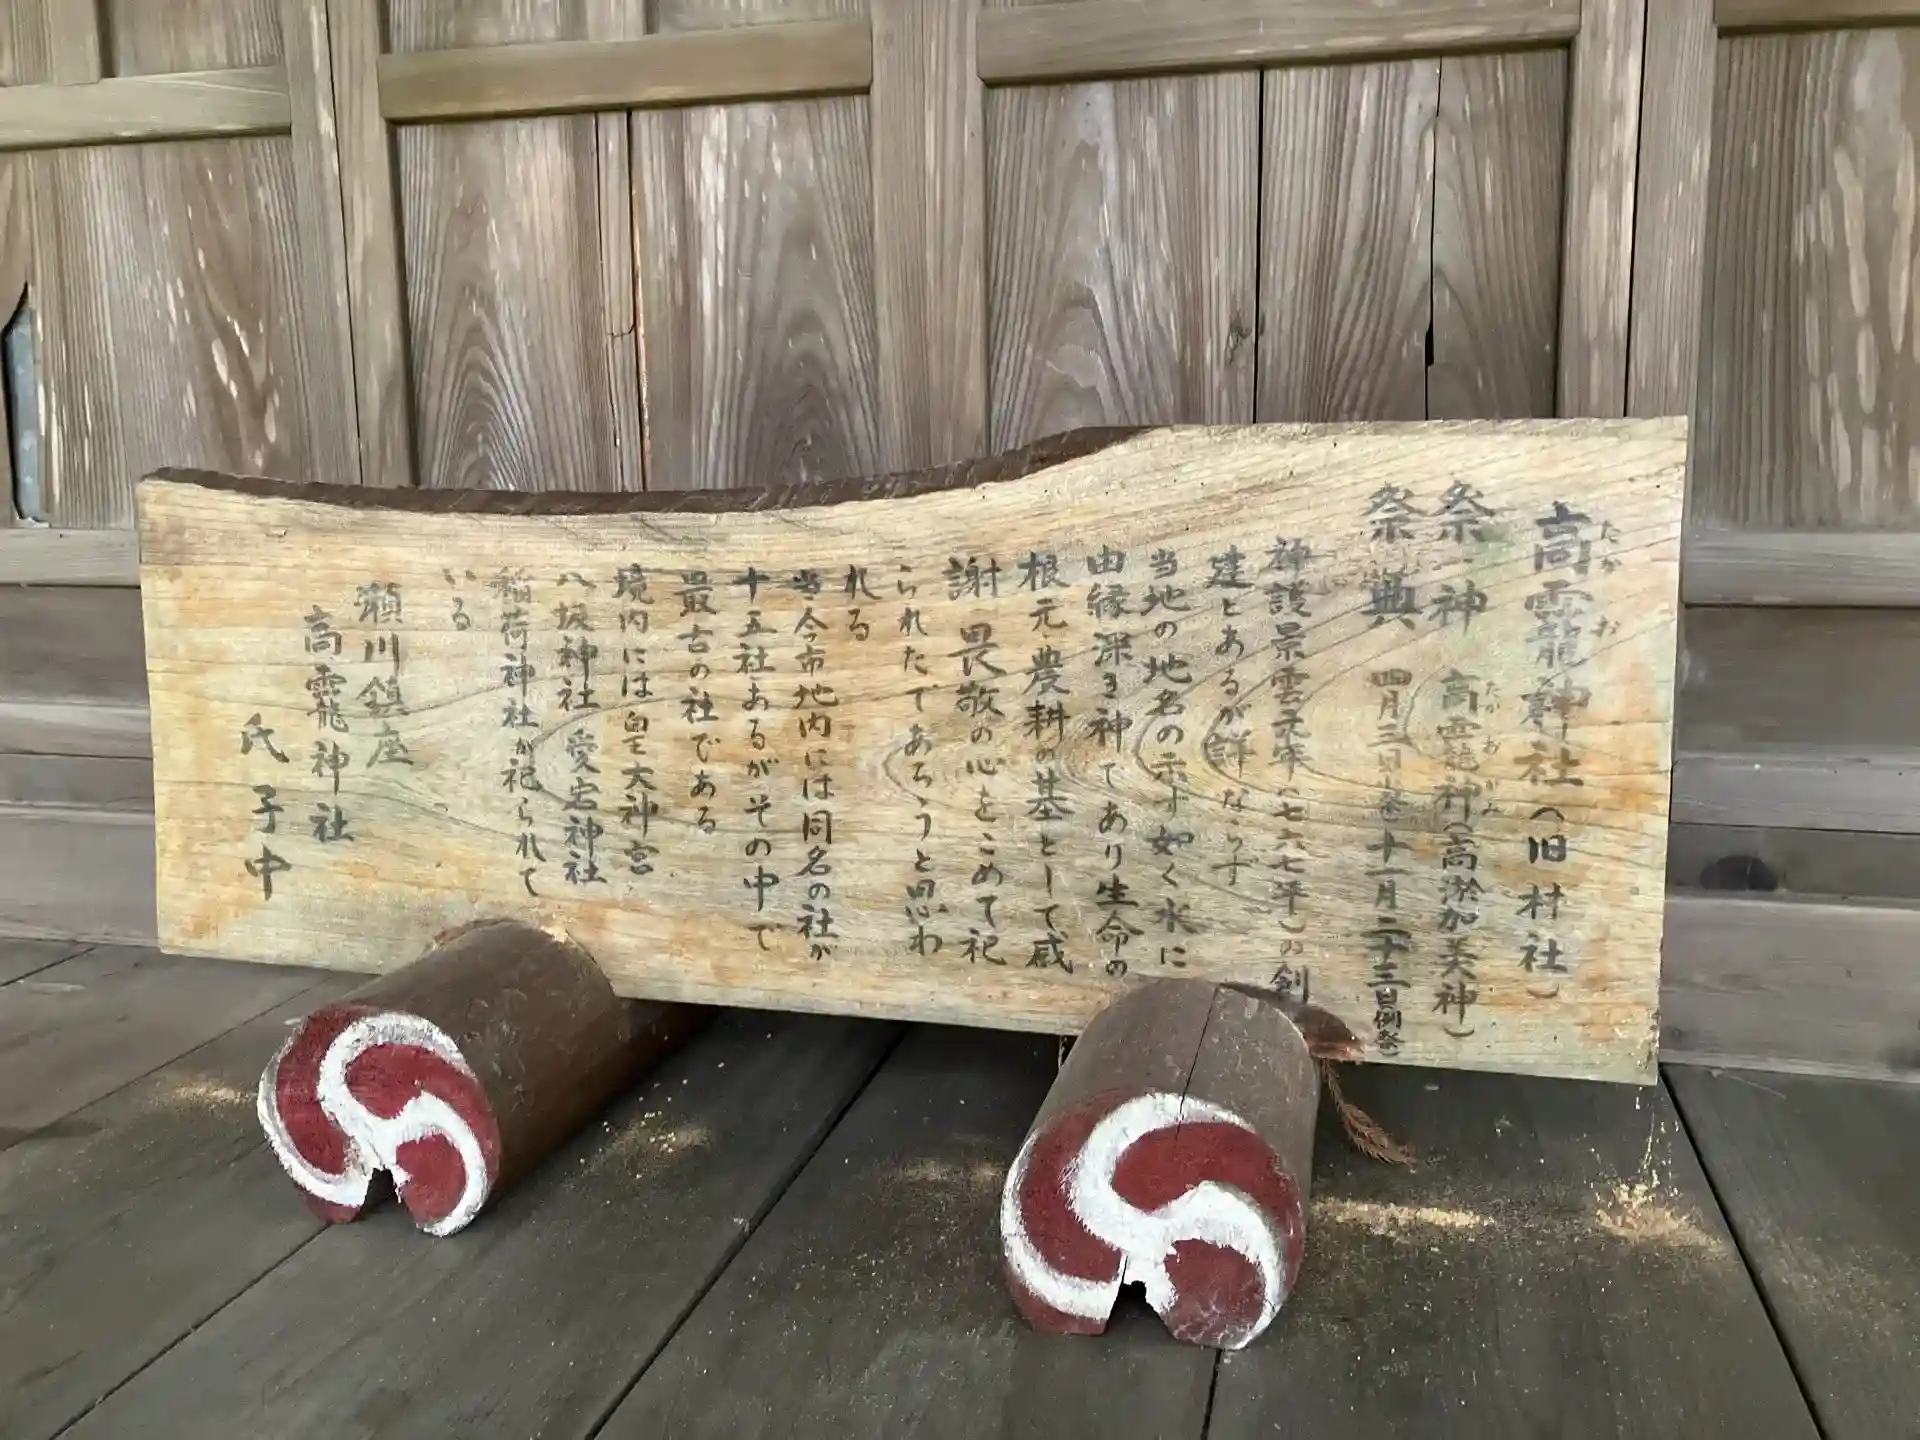 高龗神社(旧村社)
たか お
祭神 高龗神(高淤加美神)
たか お かみ
祭典 四月三日春祭 十一月二十三日(例祭)
神護景雲元年(七六七年)の創
建とあるが詳ならず
当地の地名の示す如く水に
由縁深き神であり生命の
根元・農耕の基として感
謝畏敬の心をこめて祀
られたであろうと思わ
れる
当今市地内には同名の社が
十五社あるがその中で
最古の社である
境内には皇大神宮
八坂神社 愛宕神社
稲荷神社が祀られて
いる
瀬川鎮座
高龗神社
氏子中